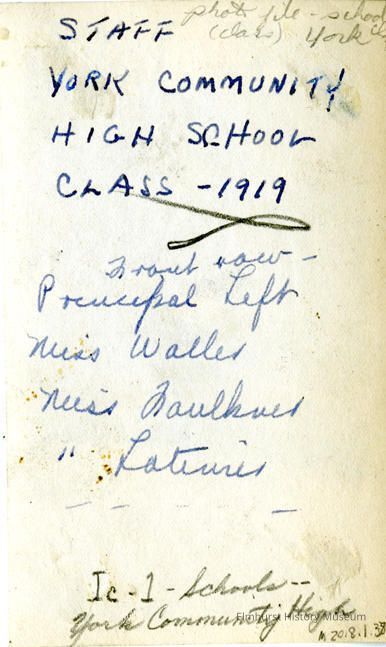 photo file - schools
(class) York
STAFF
YORK COMMUNITY
HIGH SCHOOL
CLASS - 1919
Front row -
Principal Left
Miss Waller
Miss Faulkner
" Latimer
Ic - 1 - Schools --
York Community High
Elmhurst History Museum
M2018.1.38